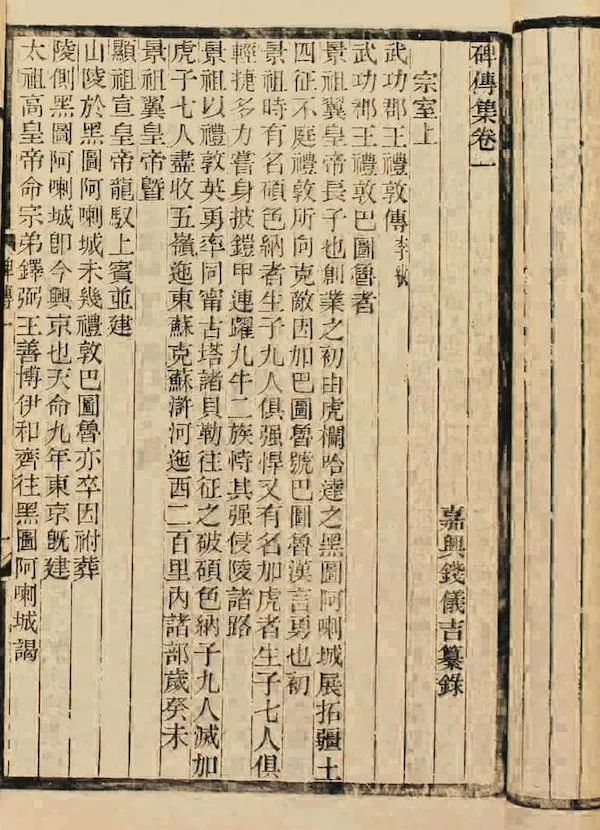 碑傳集卷一
嘉興錢儀吉纂錄
宗室上
武功郡王禮敦傳 李紱
武功郡王禮敦巴圖魯者
景祖翼皇帝長子也創業之初由虎欄哈達之黑圖阿喇城展拓疆土
四征不庭禮敦所向克敵因加巴圖魯號巴圖魯漢言勇也初
景祖時有名碩色納者生子九人俱强悍又有名加虎者生子七人俱
輕捷多力嘗身披鎧甲連躍九牛二族恃其强侵陵諸路
景祖以禮敦英勇率同甯古塔諸貝勒往征之破碩色納子九人滅加
虎子七人盡收五嶺迤東蘇克蘇滸河迤西二百里內諸部歲癸未
景祖翼皇帝暨
顯祖宣皇帝龍馭上賓並建
山陵於黑圖阿喇城未幾禮敦巴圖魯亦卒因祔葬
陵側黑圖阿喇城卽今興京也天命九年東京旣建
太祖高皇帝命宗弟鐸弼王善博伊和齊往黑圖阿喇城謁
碑傳一